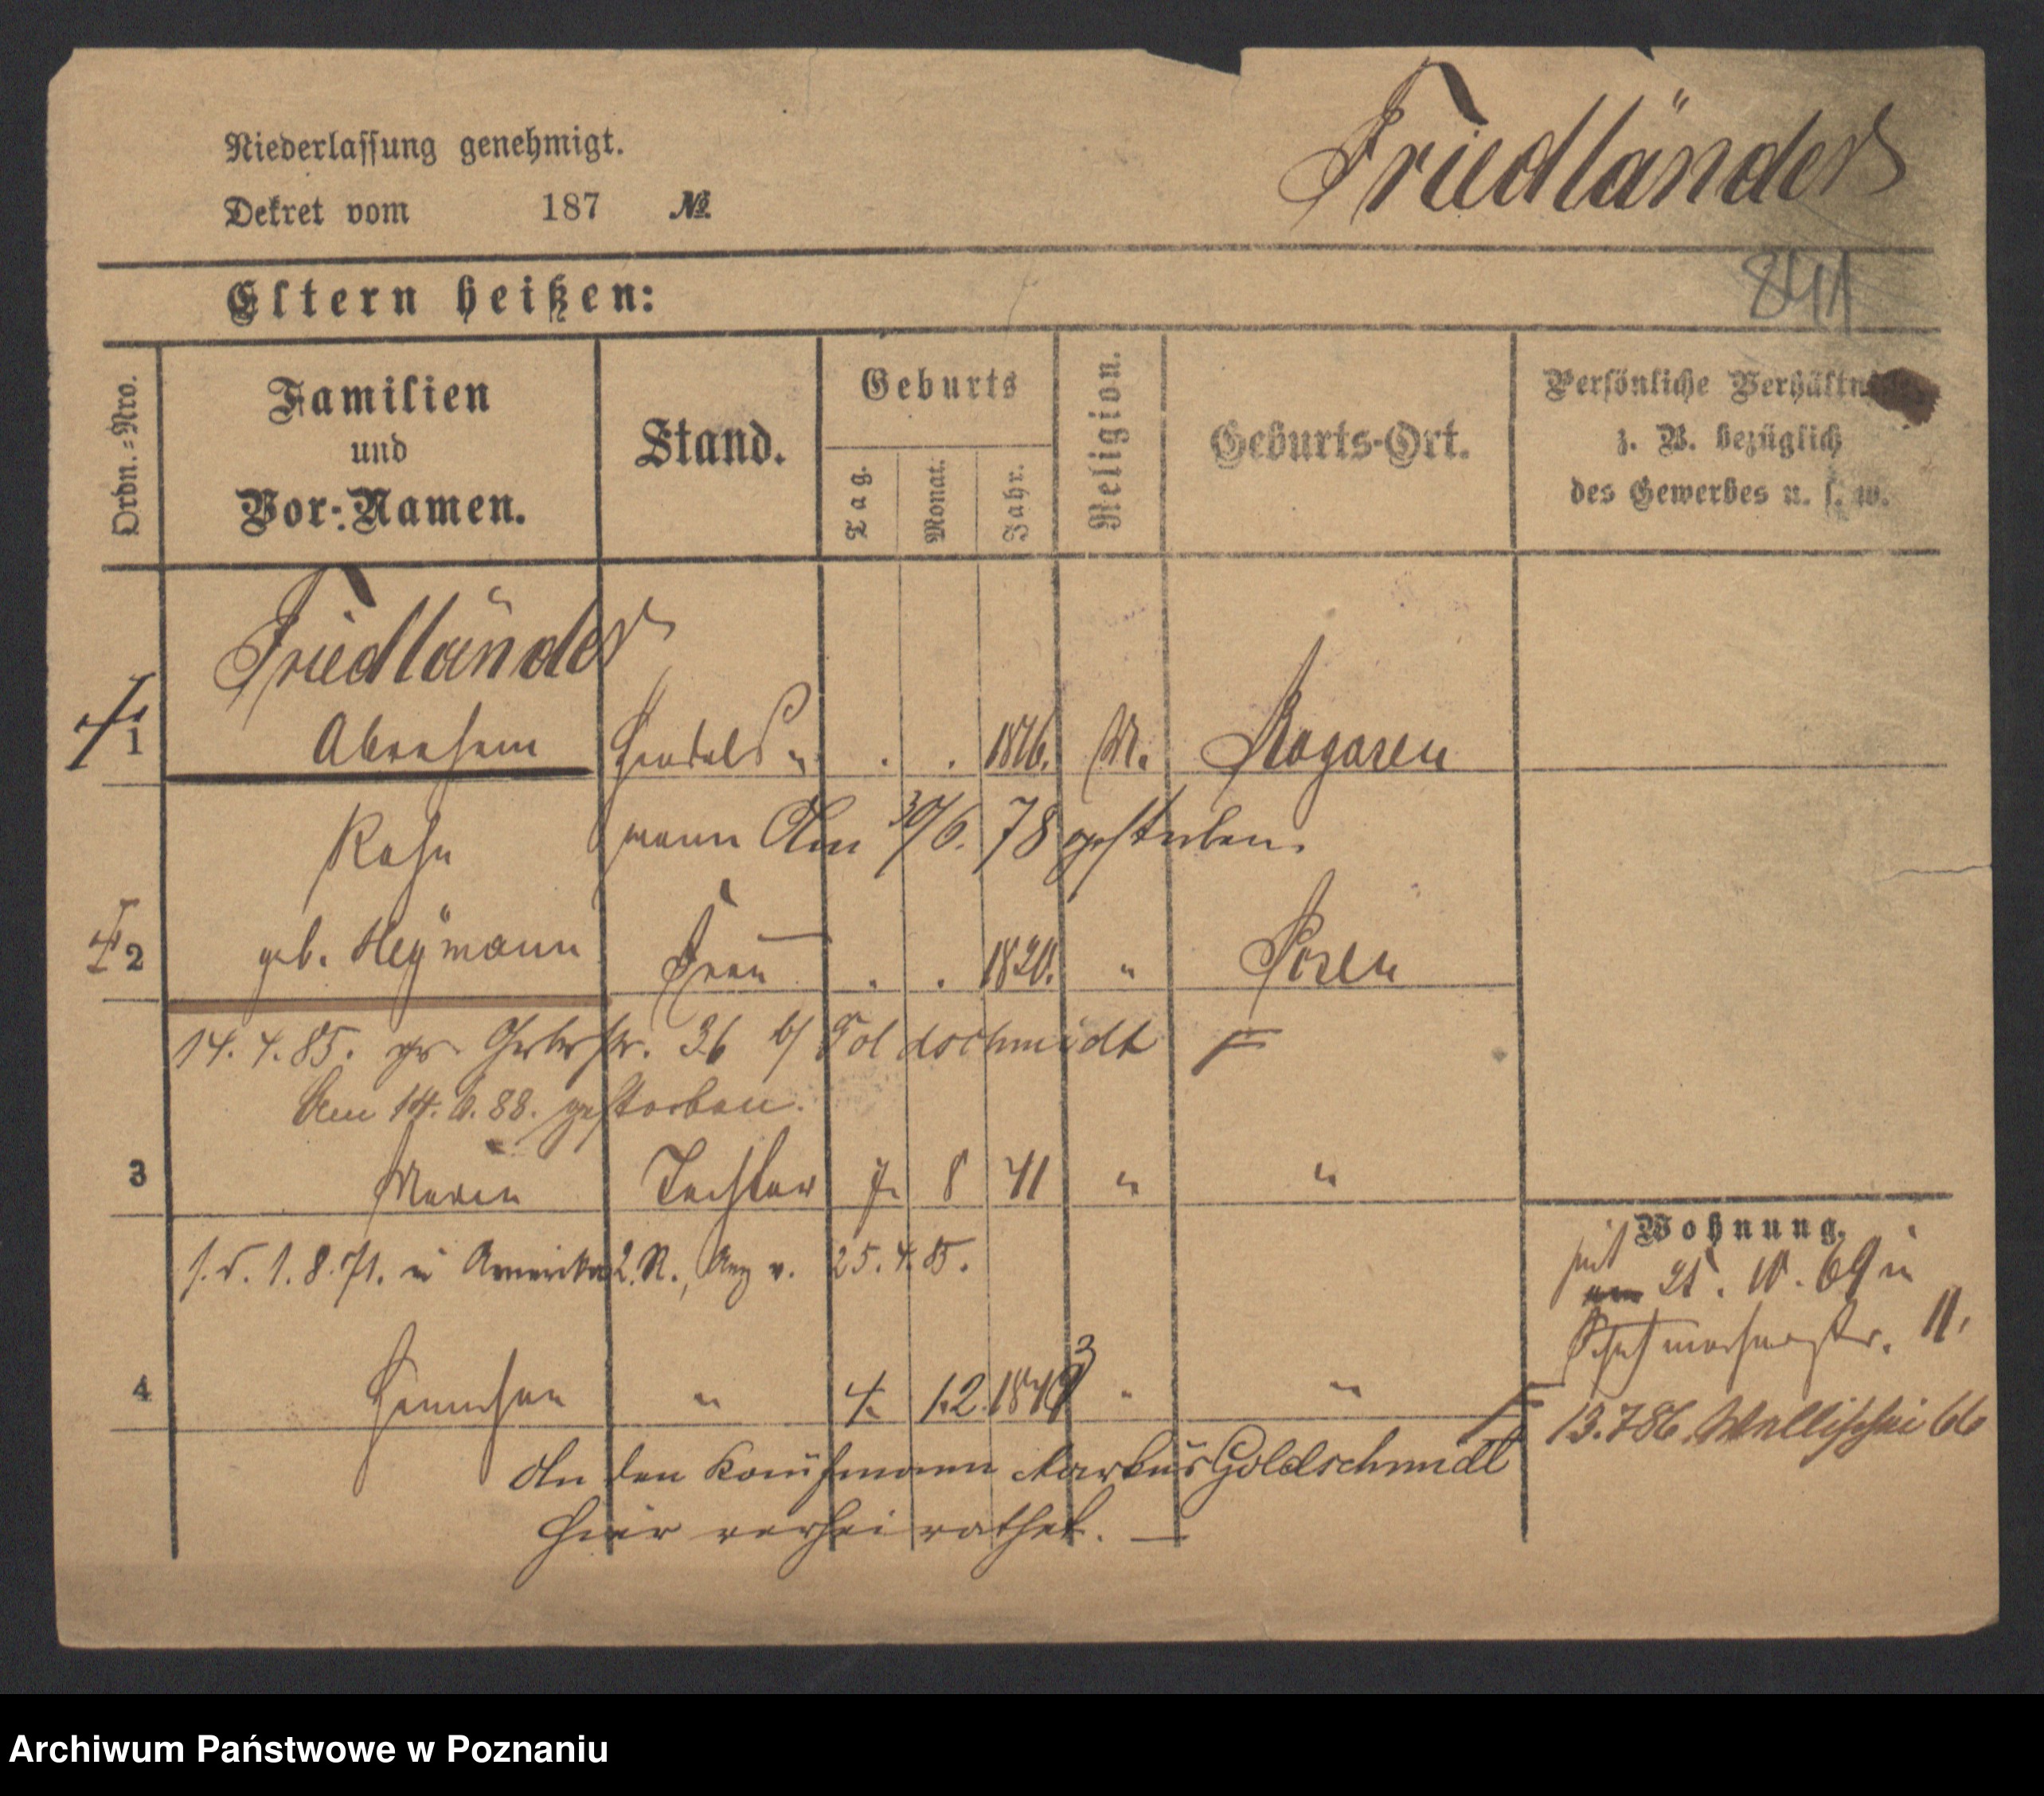 Friedländer
Niederlassung genehmigt.
Dekret vom 187 №
841
Eltern heißen:
Ordn.=Nro.
Familien
und
Vor=Namen.
Stand.
Geburts
Tag.
Monat.
Jahr.
Religion.
Geburts=Ort.
Persönliche Verhältnisse,
z. B. bezüglich
des Gewerbes u. s. w.
Friedländer
1 Abraham Handels= . . 1816. M. Rogasen
mann Am 30/6. 78 gestorben.
2 geb. Heymann Frau . . 1820. " Posen
14. 4. 85. Gerberstr. 36 b/ Goldschmidt F
Am 14. 6. 88. gestorben.
3 Tochter 7. 8 41 " "
1. 8. 71. in Amerika 25. 4. 85.
Wohnung.
seit
25. 10. 69 in
Schuhmacherstr. 11.
4 " 4. 12. 184 3 " "
F 13.786. Wallischei 66
An den Kaufmann Markus Goldschmidt
hier verheirathet. —
Archiwum Państwowe w Poznaniu